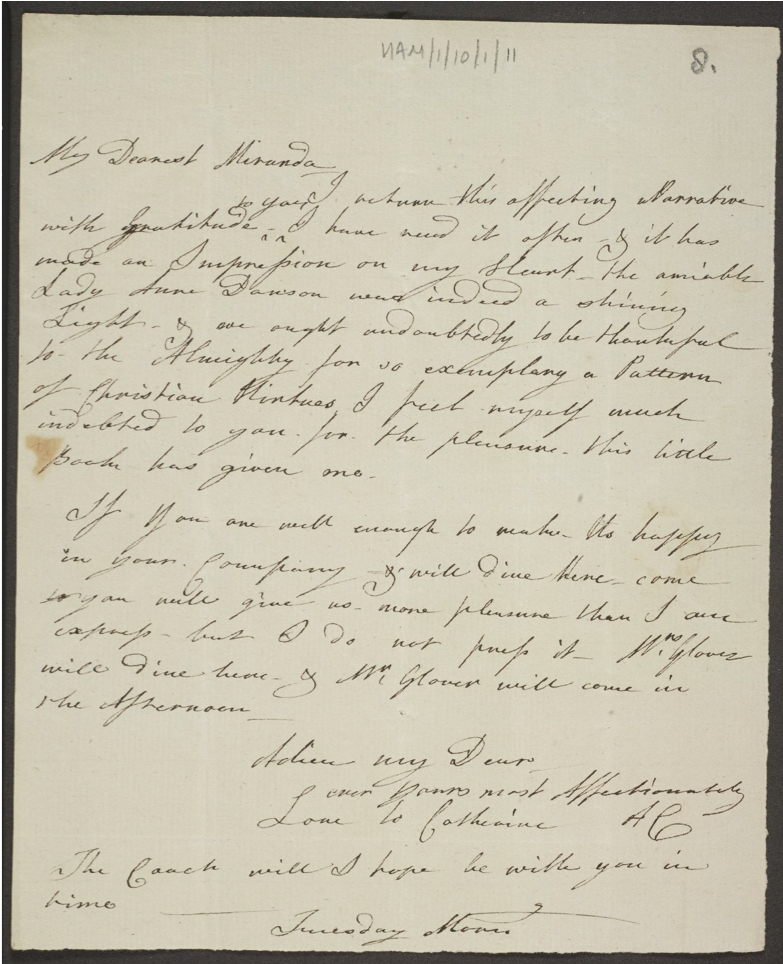 HAM/1/10/1/11
8.
My Dearest Miranda
to you I return this affecting Narrative
with Gratitude - ^ ^ I have read it often - & it has
made an Impression on my Heart - the amiable
Lady Anne Dawson was indeed a shining
Light - & we ought undoubtedly to be thankful
to the Almighty for so exemplary a Pattern
of Christian Virtues, I feel myself much
indebted to you for the pleasure this little
Book has given me.
If you are well enough to make Us happy
in your Company & will dine Here - come
you will give us more pleasure than I can
express - but I do not press it - Mrs. Glover
will dine here - & Mr. Glover will come in
the Afternoon
Adieu my Dear
ever Yours most Affectionately
Love to Catherine AC
The Coach will I hope be with you in
time
Tuesday Morn